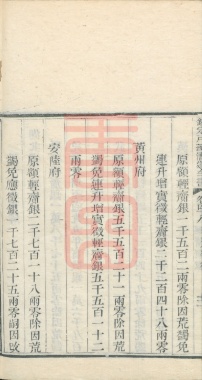 原額輕齎銀二千五百二十一兩零除因荒蠲免
連升增實徵輕齎銀二千二百四十八兩零
黃州府
原額輕齎銀五千五百二十一兩零除因荒
蠲免連升增實徵輕齎銀五千五百一十二
兩零
安陸府
原額輕齎銀二千七百二十八兩零除因荒
蠲免應徵銀二千七百二十五兩零嗣因改